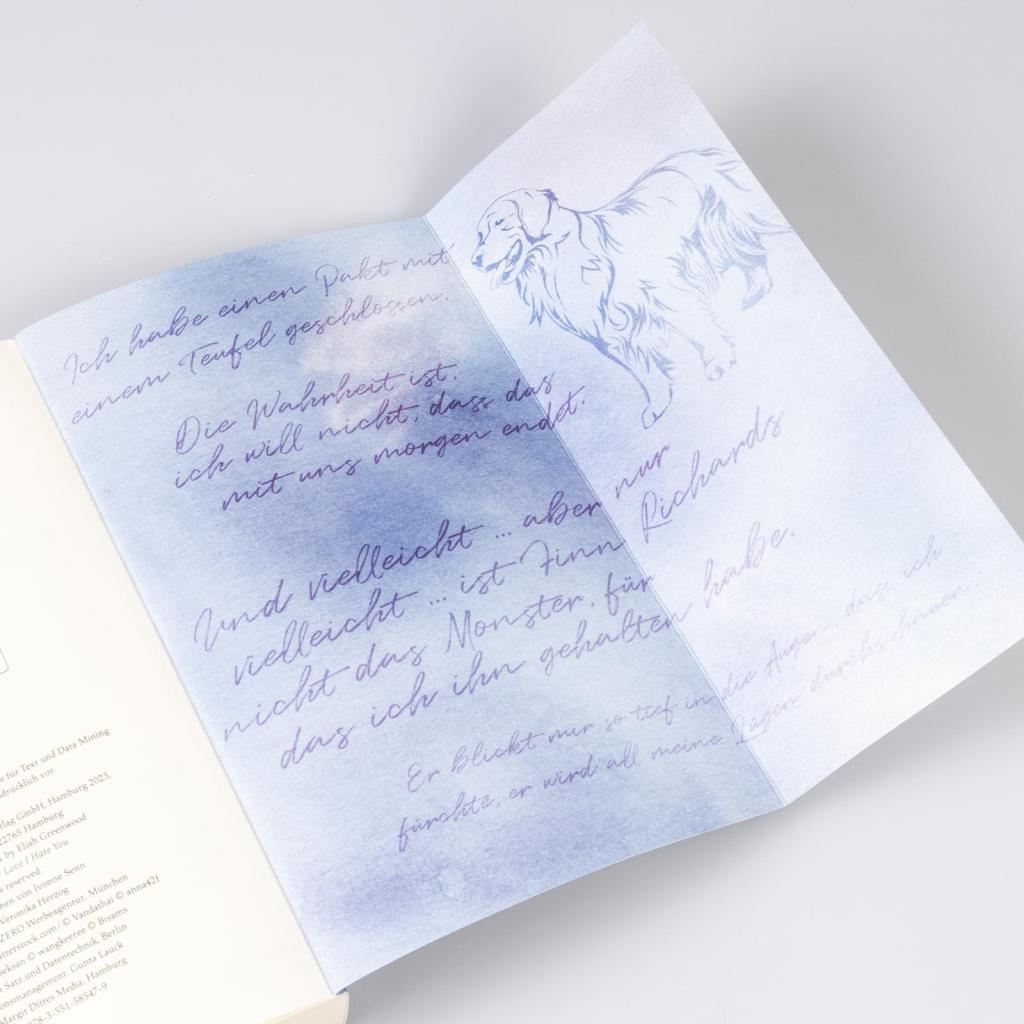 e für Text und Data Mining
drücklich vor.
lag GmbH, Hamburg 2023,
22765 Hamburg
by Eliah Greenwood
Love I Hate You
s reserved.
nen von Ivonne Senn
Veronika Herzog
ZERO Werbeagentur, München
tterstock.com/ © Vandathai © anna42f
seksan © wangkeeree © Bisams
Satz und Datentechnik, Berlin
onsmanagement: Gunta Lauck
Margit Dirres Media, Hamburg
978-3-551-58547-9
Ich habe einen Pakt mit
einem Teufel geschlossen.
Die Wahrheit ist,
ich will nicht, dass das
mit uns morgen endet.
Und vielleicht ... aber nur
vielleicht ... ist Finn Richards
nicht das Monster, für
das ich ihn gehalten habe.
Er blickt mir so tief in die Augen, dass ich
fürchte, er wird all meine Lügen durchschauen.